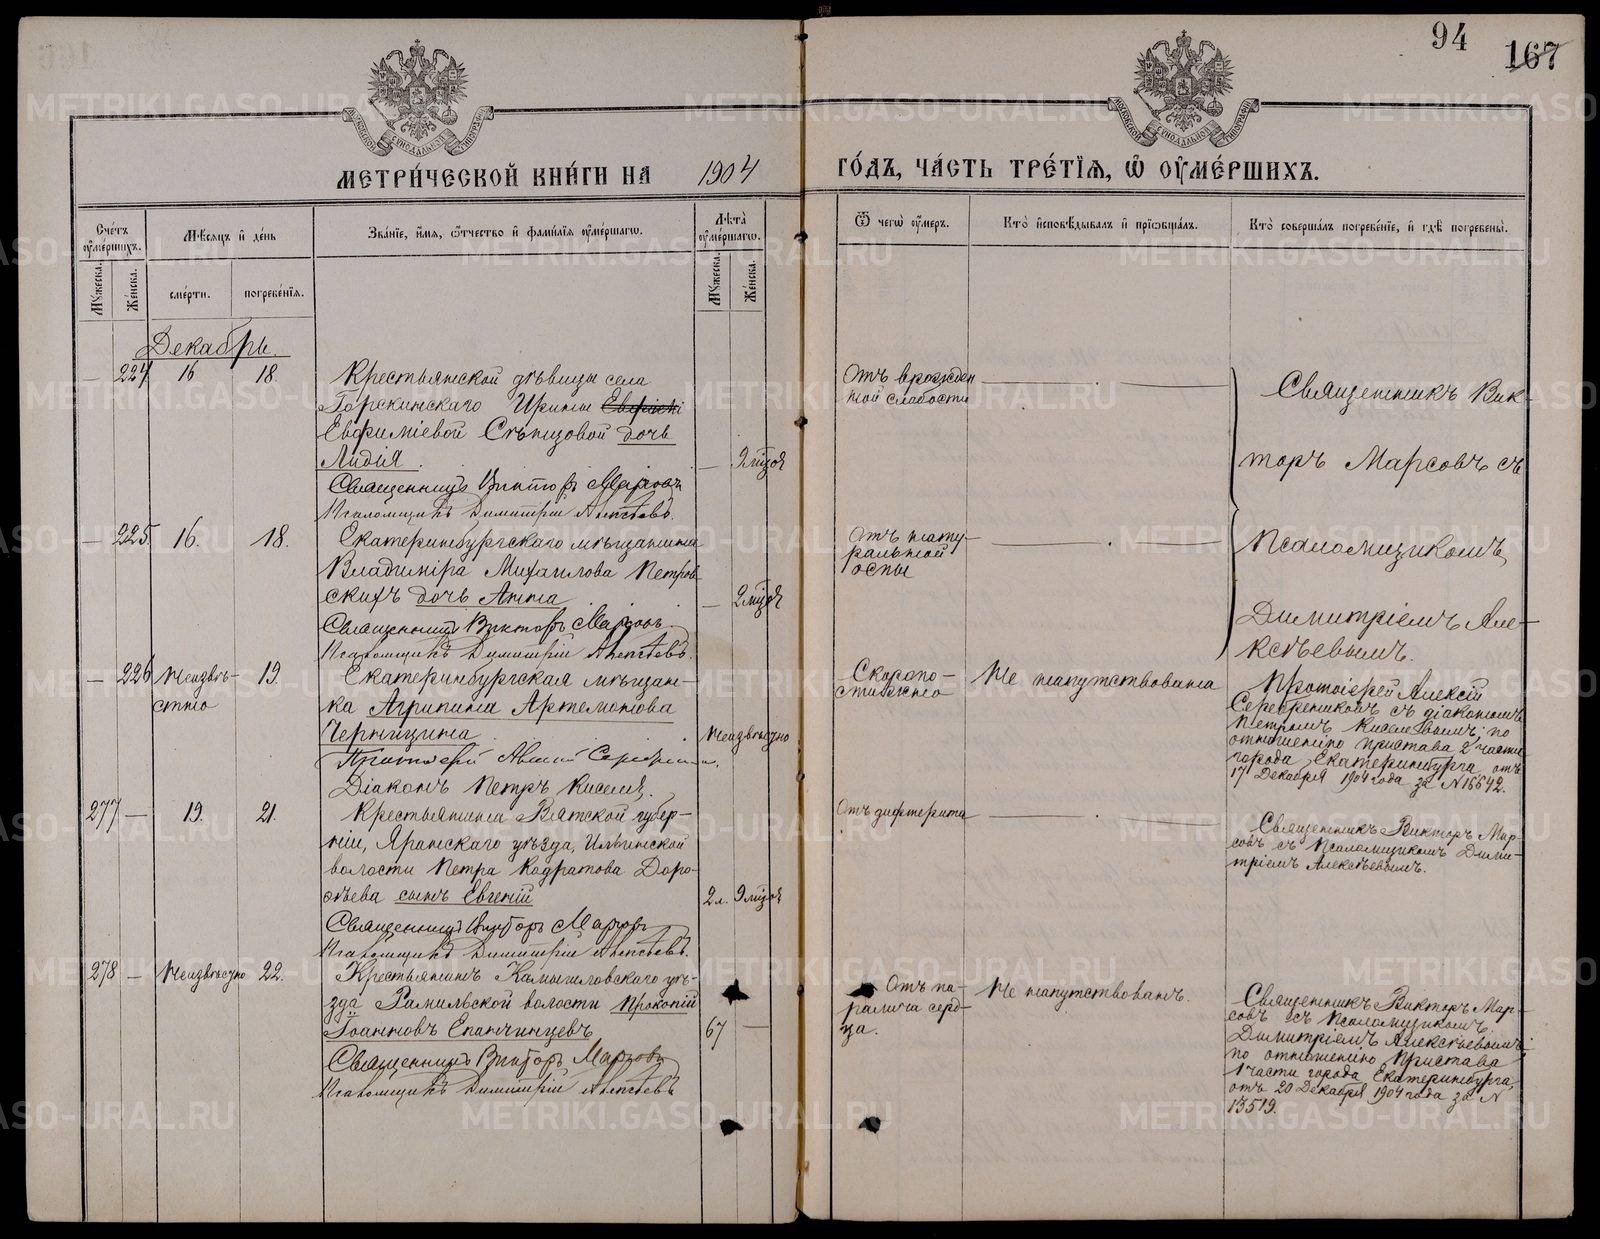 94
167
МЕТРИ́ЧЕСКОЙ КНИ́ГИ НА 1904 ГО́ДЪ, ЧА́СТЬ ТРЕ́ТІѦ, Ѡ ОУМЕ́РШИХЪ.
Сче́тъ оуме́ршихъ.
Мꙋжеска.
Же́нска.
Мѣсѧцъ и де́нь
сме́рти.
погребе́нїѧ.
Зва́нїе, и́мѧ, ѻ́тчество и фами́лїѧ оуме́ршагѡ.
Лѣта̀ оуме́ршагѡ.
Мꙋжеска.
Же́нска.
Ѿ чегѡ̀ оу́меръ.
Кто̀ и҆сповѣ́дывалъ и҆ прїѡбща́лъ.
Кто̀ соверша́лъ погребе́нїе, и҆ гдѣ̀ погребены̀.
Декабрь.
— 224 16 18.
Крестьянской дѣвицы села
Горскинскаго Ирины Евфимі
Евфиміевой Слѣпцовой дочь
Лидія.
— 9 мѣсяц.
Священникъ Викторъ Марсовъ
Псаломщикъ Димитрій Алексѣевъ.
Отъ врожден
ной слабости
Священникъ Вик-
торъ Марсовъ съ
Псаломщикомъ
Димитріемъ Але-
ксѣевымъ.
— 225. 16. 18.
Екатеринбургскаго мѣщанина
Владиміра Михаилова Петров
скихъ дочь Анна
— 2 мѣсяц.
Священникъ Викторъ Марсовъ.
Псаломщикъ Димитрій Алексѣевъ.
Отъ нату-
ральной
оспы
— 226 Неизвѣ-
стно
19.
Екатеринбургская мѣщан-
ка Агрипина Артемонова
Черницина
Неизвѣстно
Протоіерей Алексій
Діаконъ Петръ Киселевъ.
Скоропо-
стижно
Не напутствована
Протоіерей Алексій
Серебренниковъ съ діакономъ
Петромъ Киселевымъ, по
отношенію пристава 2 части
города Екатеринбурга отъ
17 Декабря 1904 года за N 16642.
277 — 19. 21.
Крестьянина Вятской губер-
ніи, Яранскаго уѣзда, Ильинской
волости Петра Кодратова Доро-
ѳѣева сынъ Евгеній
2 л. 9 мѣсяц.
Священникъ Викторъ Марсовъ
Псаломщикъ Димитрій Алексѣевъ.
Отъ дифтерита
Священникъ Викторъ Мар-
совъ съ Псаломщикомъ Дими-
тріемъ Алексѣевымъ.
278 — Неизвѣстно 22.
Крестьянинъ Камышловскаго уѣ-
зда Рамыльской волости Прокопій
Іоанновъ Епанчинцевъ
67 —
Священникъ Викторъ Марсовъ
Псаломщикъ Димитрій Алексѣевъ
Отъ па-
ралича серд-
ца.
Не напутствованъ.
Священникъ Викторъ Мар-
совъ съ Псаломщикомъ
Димитріемъ Алексѣевымъ
по отношенію Пристава
1 части города Екатеринбурга,
отъ 20 Декабря 1904 года за N
13519.
METRIKI.GASO-URAL.RU